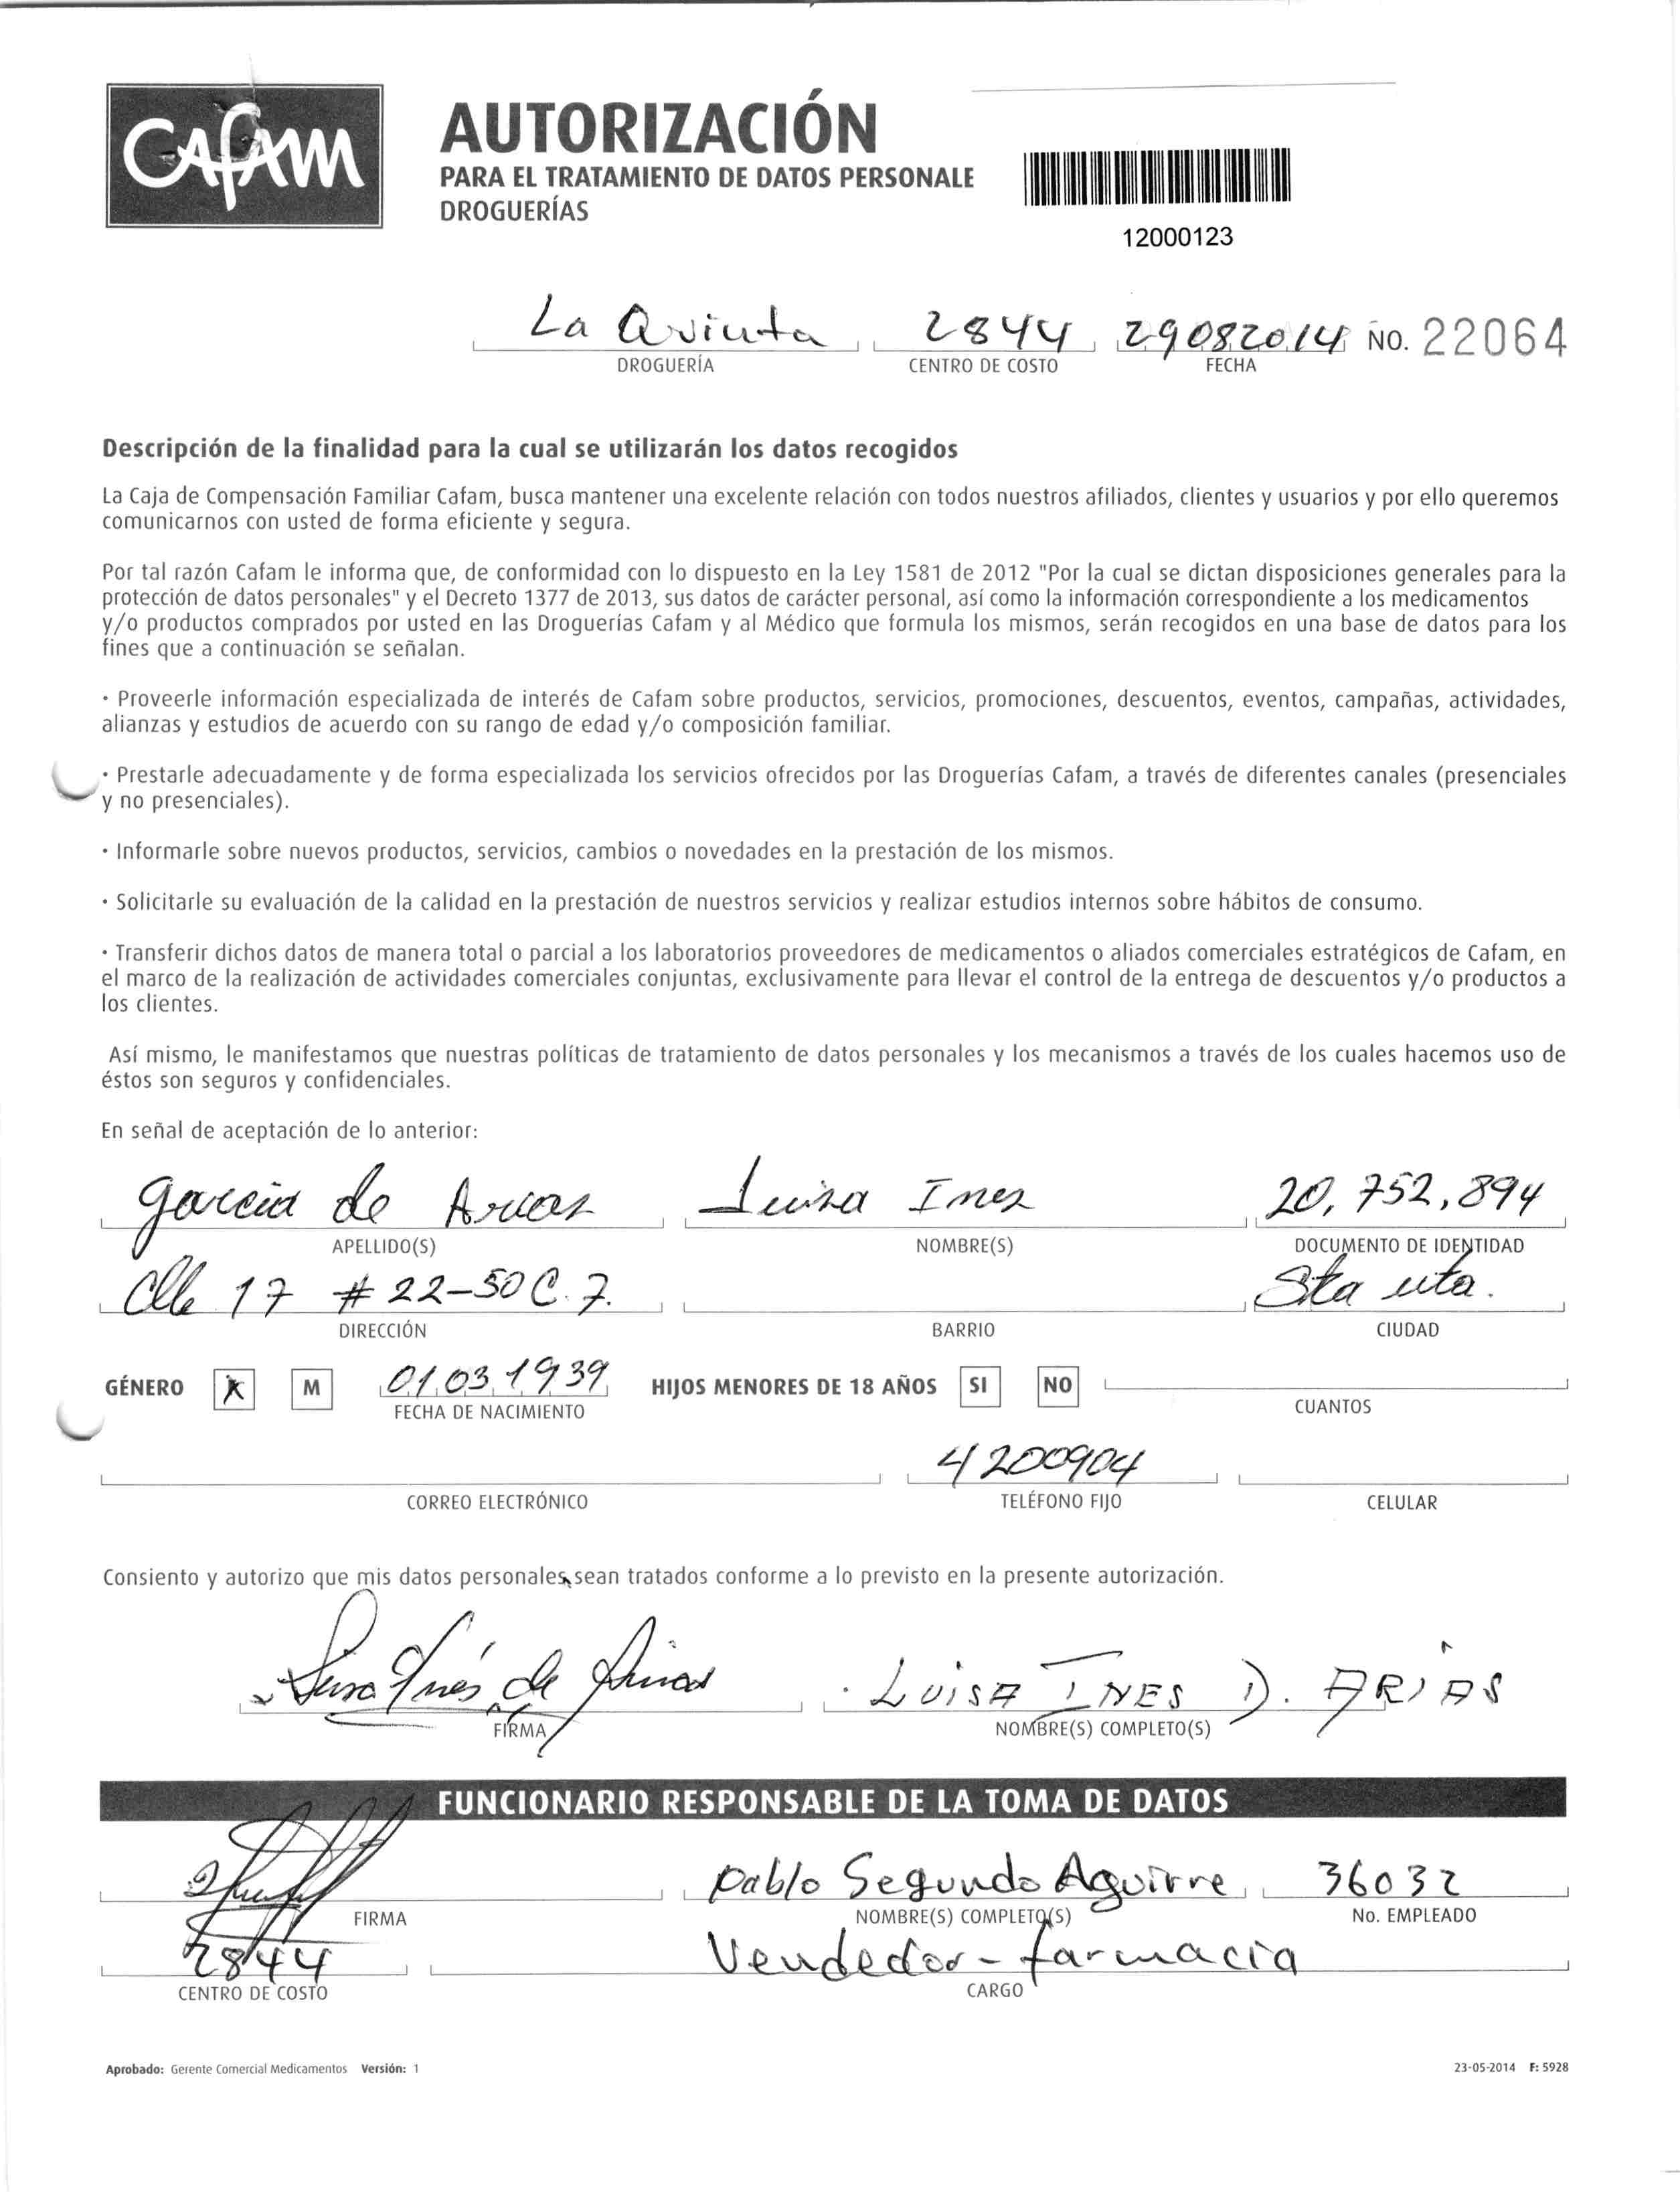 CAFAM
AUTORIZACIÓN
PARA EL TRATAMIENTO DE DATOS PERSONALE
DROGUERÍAS
12000123
La Quinta 2844 29082014 NO. 22064
DROGUERÍA CENTRO DE COSTO FECHA
Descripción de la finalidad para la cual se utilizarán los datos recogidos
La Caja de Compensación Familiar Cafam, busca mantener una excelente relación con todos nuestros afiliados, clientes y usuarios y por ello queremos
comunicarnos con usted de forma eficiente y segura.
Por tal razón Cafam le informa que, de conformidad con lo dispuesto en la Ley 1581 de 2012 "Por la cual se dictan disposiciones generales para la
protección de datos personales" y el Decreto 1377 de 2013, sus datos de carácter personal, así como la información correspondiente a los medicamentos
y/o productos comprados por usted en las Droguerías Cafam y al Médico que formula los mismos, serán recogidos en una base de datos para los
fines que a continuación se señalan.
· Proveerle información especializada de interés de Cafam sobre productos, servicios, promociones, descuentos, eventos, campañas, actividades,
alianzas y estudios de acuerdo con su rango de edad y/o composición familiar.
· Prestarle adecuadamente y de forma especializada los servicios ofrecidos por las Droguerías Cafam, a través de diferentes canales (presenciales
y no presenciales).
· Informarle sobre nuevos productos, servicios, cambios o novedades en la prestación de los mismos.
· Solicitarle su evaluación de la calidad en la prestación de nuestros servicios y realizar estudios internos sobre hábitos de consumo.
· Transferir dichos datos de manera total o parcial a los laboratorios proveedores de medicamentos o aliados comerciales estratégicos de Cafam, en
el marco de la realización de actividades comerciales conjuntas, exclusivamente para llevar el control de la entrega de descuentos y/o productos a
los clientes.
Así mismo, le manifestamos que nuestras políticas de tratamiento de datos personales y los mecanismos a través de los cuales hacemos uso de
éstos son seguros y confidenciales.
En señal de aceptación de lo anterior:
Garcia de Arias Luisa Ines 20,752,894
APELLIDO(S) NOMBRE(S) DOCUMENTO DE IDENTIDAD
Clle 17 # 22-50 C. 7. Sta
DIRECCIÓN BARRIO CIUDAD
GÉNERO X M 01 03 1939 HIJOS MENORES DE 18 AÑOS SI NO
FECHA DE NACIMIENTO CUANTOS
4200904
CORREO ELECTRÓNICO TELÉFONO FIJO CELULAR
Consiento y autorizo que mis datos personales sean tratados conforme a lo previsto en la presente autorización.
Luisa Inés de Arias LUISA INES D. ARIAS
FIRMA NOMBRE(S) COMPLETO(S)
FUNCIONARIO RESPONSABLE DE LA TOMA DE DATOS
Pablo Segundo Aguirre 36032
FIRMA NOMBRE(S) COMPLETO(S) No. EMPLEADO
2844 Vendedor - farmacia
CENTRO DE COSTO CARGO
Aprobado: Gerente Comercial Medicamentos Versión: 1 23-05-2014 F: 5928